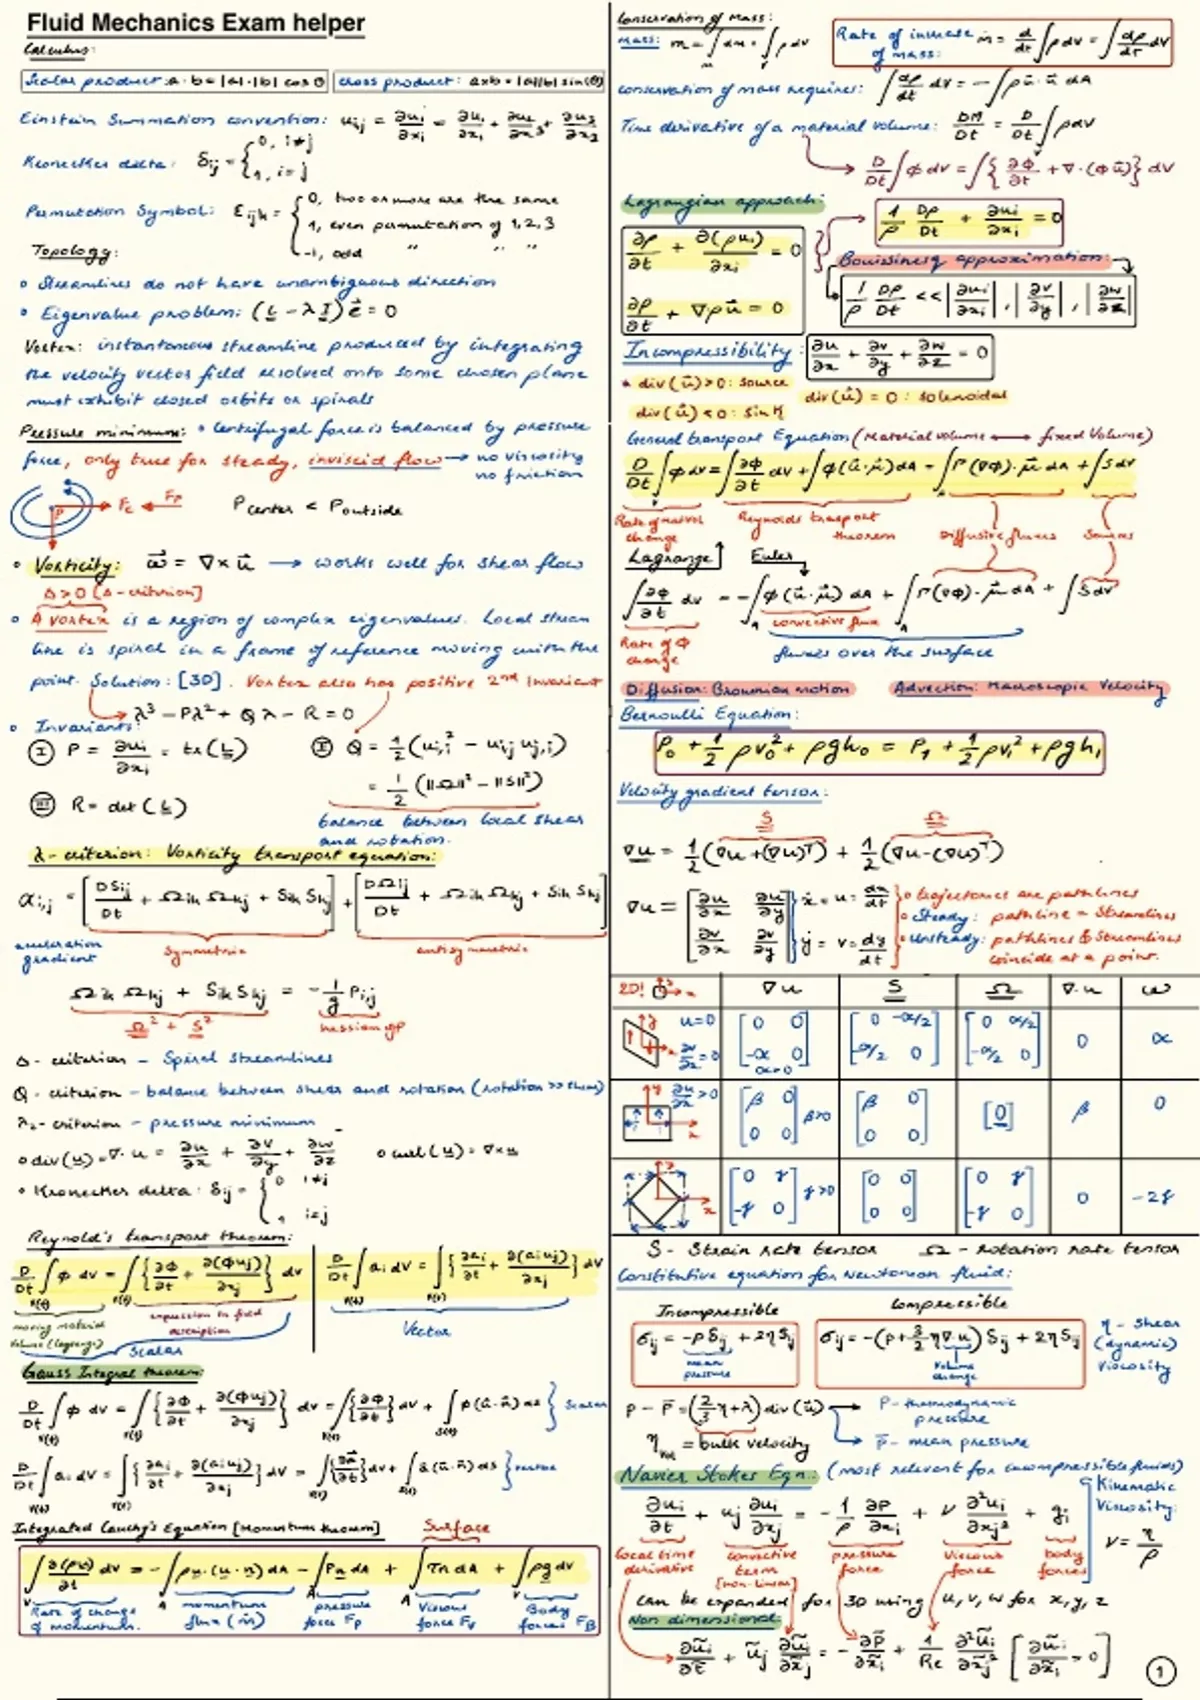 Fluid Mechanics Exam helper
Calculus:
Scalar product: a·b = |a|·|b| cos θ
cross product: a×b = |a||b| sin(θ)
Einstein Summation convention: u_{i,j} = ∂u_i/∂x_i = ∂u_1/∂x_1 + ∂u_2/∂x_3 + ∂u_3/∂x_3
Kronecker delta: δ_ij = { 0, i≠j
1, i=j
Permutation Symbol: ε_ijk = { 0, two or more are the same
1, even permutation of 1,2,3
-1, odd " " "
Topology:
• Streamlines do not have unambiguous direction
• Eigenvalue problem: (L - λI)e⃗ = 0
Vortex: instantaneous streamline produced by integrating
the velocity vector field resolved onto some chosen plane
must exhibit closed orbits or spirals
Pressure minimum: • Centrifugal force is balanced by pressure
force, only true for steady, inviscid flow → no viscosity
no friction
P F_c F_P P center < P outside
• Vorticity: ω⃗ = ∇×u⃗ → works well for shear flow
Δ>0 [Δ-criterion]
• A vortex is a region of complex eigenvalues. Local stream
line is spiral in a frame of reference moving with the
point. Solution: [3D]. Vortex also has positive 2nd Invariant
λ³ - Pλ² + Qλ - R = 0
• Invariants:
I P = ∂u_i/∂x_i = tr(L)
II Q = 1/2(u_{i,i}² - u_{i,j} u_{j,i})
= 1/2 (||Ω||² - ||S||²)
III R = det(L)
balance between local shear
and rotation.
λ-criterion: Vorticity transport equation:
a_{i,j} = [DS_ij/Dt + Ω_ik Ω_kj + S_ik S_kj] + [DΩ_ij/Dt + Ω_ik Ω_kj + S_ik S_kj]
acceleration gradient
Symmetric
antisymmetric
Ω_ik Ω_kj + S_ik S_kj = -1/ρ P_{i,j}
Ω² + S²
hessian of P
Δ-criterion - Spiral streamlines
Q-criterion - balance between shear and rotation (rotation >> shear)
λ₂-criterion - pressure minimum
• div(u) = ∇·u = ∂u/∂x + ∂v/∂y + ∂w/∂z • curl(u) = ∇×u
• Kronecker delta: δ_ij = { 0 i≠j
1 i=j
Reynold's transport theorem:
D/Dt ∫_V(t) φ dv = ∫_V(t) {∂φ/∂t + ∂(φu_j)/∂x_j} dv
D/Dt ∫_V(t) a_i dV = ∫_V(t) {∂a_i/∂t + ∂(a_i u_j)/∂x_j} dV
moving material volume (Lagrange)
expression in fixed description
Scalar
Vector
Gauss Integral theorem:
D/Dt ∫_V(t) φ dv = ∫_V(t) {∂φ/∂t + ∂(φu_j)/∂x_j} dv = ∫_V(t) {∂φ/∂t} dv + ∫_S(t) φ(u⃗·n⃗) ds } Scalar
D/Dt ∫_V(t) a_i dv = ∫_V(t) {∂a_i/∂t + ∂(a_i u_j)/∂x_j} dV = ∫_V(t) {∂a⃗/∂t} dv + ∫_S(t) a⃗(u⃗·n⃗) ds } vector
Integrated Cauchy's Equation [Momentum theorem] Surface
∫_V ∂(ρu)/∂t dv = -∫_A ρu·(u·n) dA - ∫_A Pn dA + ∫_A τn dA + ∫_V ρg dv
Rate of change of momentum.
momentum flux (ṁ)
pressure force F_P
Viscous force F_V
Body forces F_B
Conservation of Mass:
mass: m = ∫_m dm = ∫_V ρ dV
Rate of increase of mass: ṁ = d/dt ∫ρ dV = ∫ dρ/dt dV
conservation of mass requires: ∫ dρ/dt dV = -∫ρu⃗·u⃗ dA
Time derivative of a material volume: DM/Dt = D/Dt ∫ρdV
D/Dt ∫φ dV = ∫{∂φ/∂t + ∇·(φu⃗)} dV
Lagrangian approach:
∂ρ/∂t + ∂(ρu_i)/∂x_i = 0
∂ρ/∂t + ∇ρu⃗ = 0
1/ρ Dρ/Dt + ∂u_i/∂x_i = 0
Bouissinesq approximation:
1/ρ Dρ/Dt << |∂u_i/∂x_i|, |∂v/∂y|, |∂w/∂z|
Incompressibility: ∂u/∂x + ∂v/∂y + ∂w/∂z = 0
• div(u⃗) > 0: source div(u⃗) = 0: solenoidal
div(u⃗) < 0: sink
General transport Equation (Material volume ↔ fixed Volume)
D/Dt ∫φ dv = ∫∂φ/∂t dv + ∫φ(u⃗·n⃗)dA - ∫_A Γ(∇φ)·n⃗ dA + ∫S dv
Rate of matvol change
Reynolds transport theorem
Diffusive fluxes
Sources
Lagrange Euler
∫∂φ/∂t dv = -∫_A φ(u⃗·n⃗) dA + ∫_A Γ(∇φ)·n⃗ dA + ∫S dv
Rate of φ change
convective flux
fluxes over the surface
Diffusion: Brownian motion Advection: Macroscopic Velocity
Bernoulli Equation:
P_0 + 1/2 ρv_0² + ρgh_0 = P_1 + 1/2 ρv_1² + ρgh_1
Velocity gradient tensor:
S Ω
∇u = 1/2(∇u + (∇u)^T) + 1/2(∇u - (∇u)^T)
∇u = [∂u/∂x ∂u/∂y
∂v/∂x ∂v/∂y] } ẋ = u = dx/dt
ẏ = v = dy/dt
• trajectories are pathlines
• Steady: pathline = Streamlines
• Unsteady: pathlines & Streamlines
coincide at a point.
2D! ∇u S Ω ∇·u ω
u=0 ∂v/∂x=0 [0 0; -α 0] α>0 [0 -α/2; -α/2 0] [0 α/2; -α/2 0] 0 α
∂u/∂x>0 [β 0; 0 0] β>0 [β 0; 0 0] [0] β 0
[0 γ; -γ 0] γ>0 [0 0; 0 0] [0 γ; -γ 0] 0 -2γ
S - Strain rate tensor Ω - rotation rate tensor
Constitutive equation for Newtonian fluid:
Incompressible Compressible
σ_ij = -Pδ_ij + 2ηS_ij
mean pressure
σ_ij = -(p + 2/3 η∇·u)δ_ij + 2ηS_ij
volume change
η - Shear
(dynamic)
viscosity
p - p̄ = (2/3 η + λ) div(u⃗)
P - thermodynamic pressure
η_vol = bulk velocity
p̄ - mean pressure
Navier Stokes Eqn.: (most relevant for incompressible fluids)
∂u_i/∂t + u_j ∂u_i/∂x_j = -1/ρ ∂P/∂x_i + ν ∂²u_i/∂x_j² + g_i
Kinematic
Viscosity:
ν = η/ρ
local time derivative
convective term [non-linear]
pressure force
Viscous force
body forces
Can be expanded for 3D using u,v,w for x,y,z
Non dimensional:
∂ũ_i/∂t̃ + ũ_j ∂ũ_i/∂x̃_j = -∂P̃/∂x̃_i + 1/Re ∂²ũ_i/∂x̃_j² [∂ũ_i/∂x̃_i = 0]
1